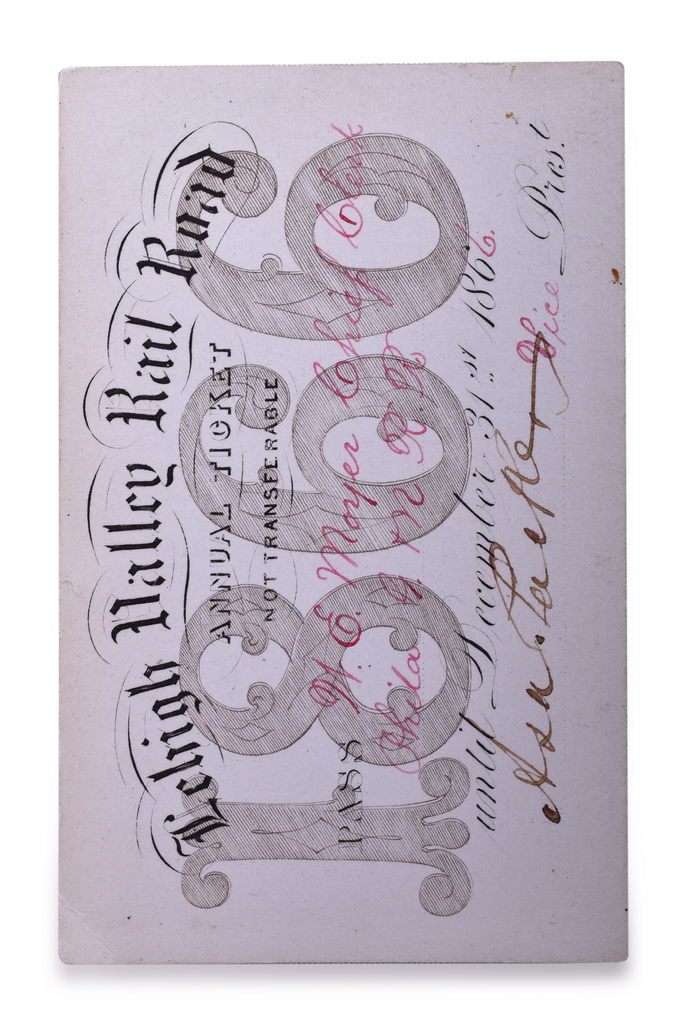 Lehigh Valley Rail Road
ANNUAL TICKET
NOT TRANSFERABLE
1866
PASS W. E. Moyer Chief Clerk
Phila & R. R.
until December 31st 1866.
Asa Packer
Vice Prest.